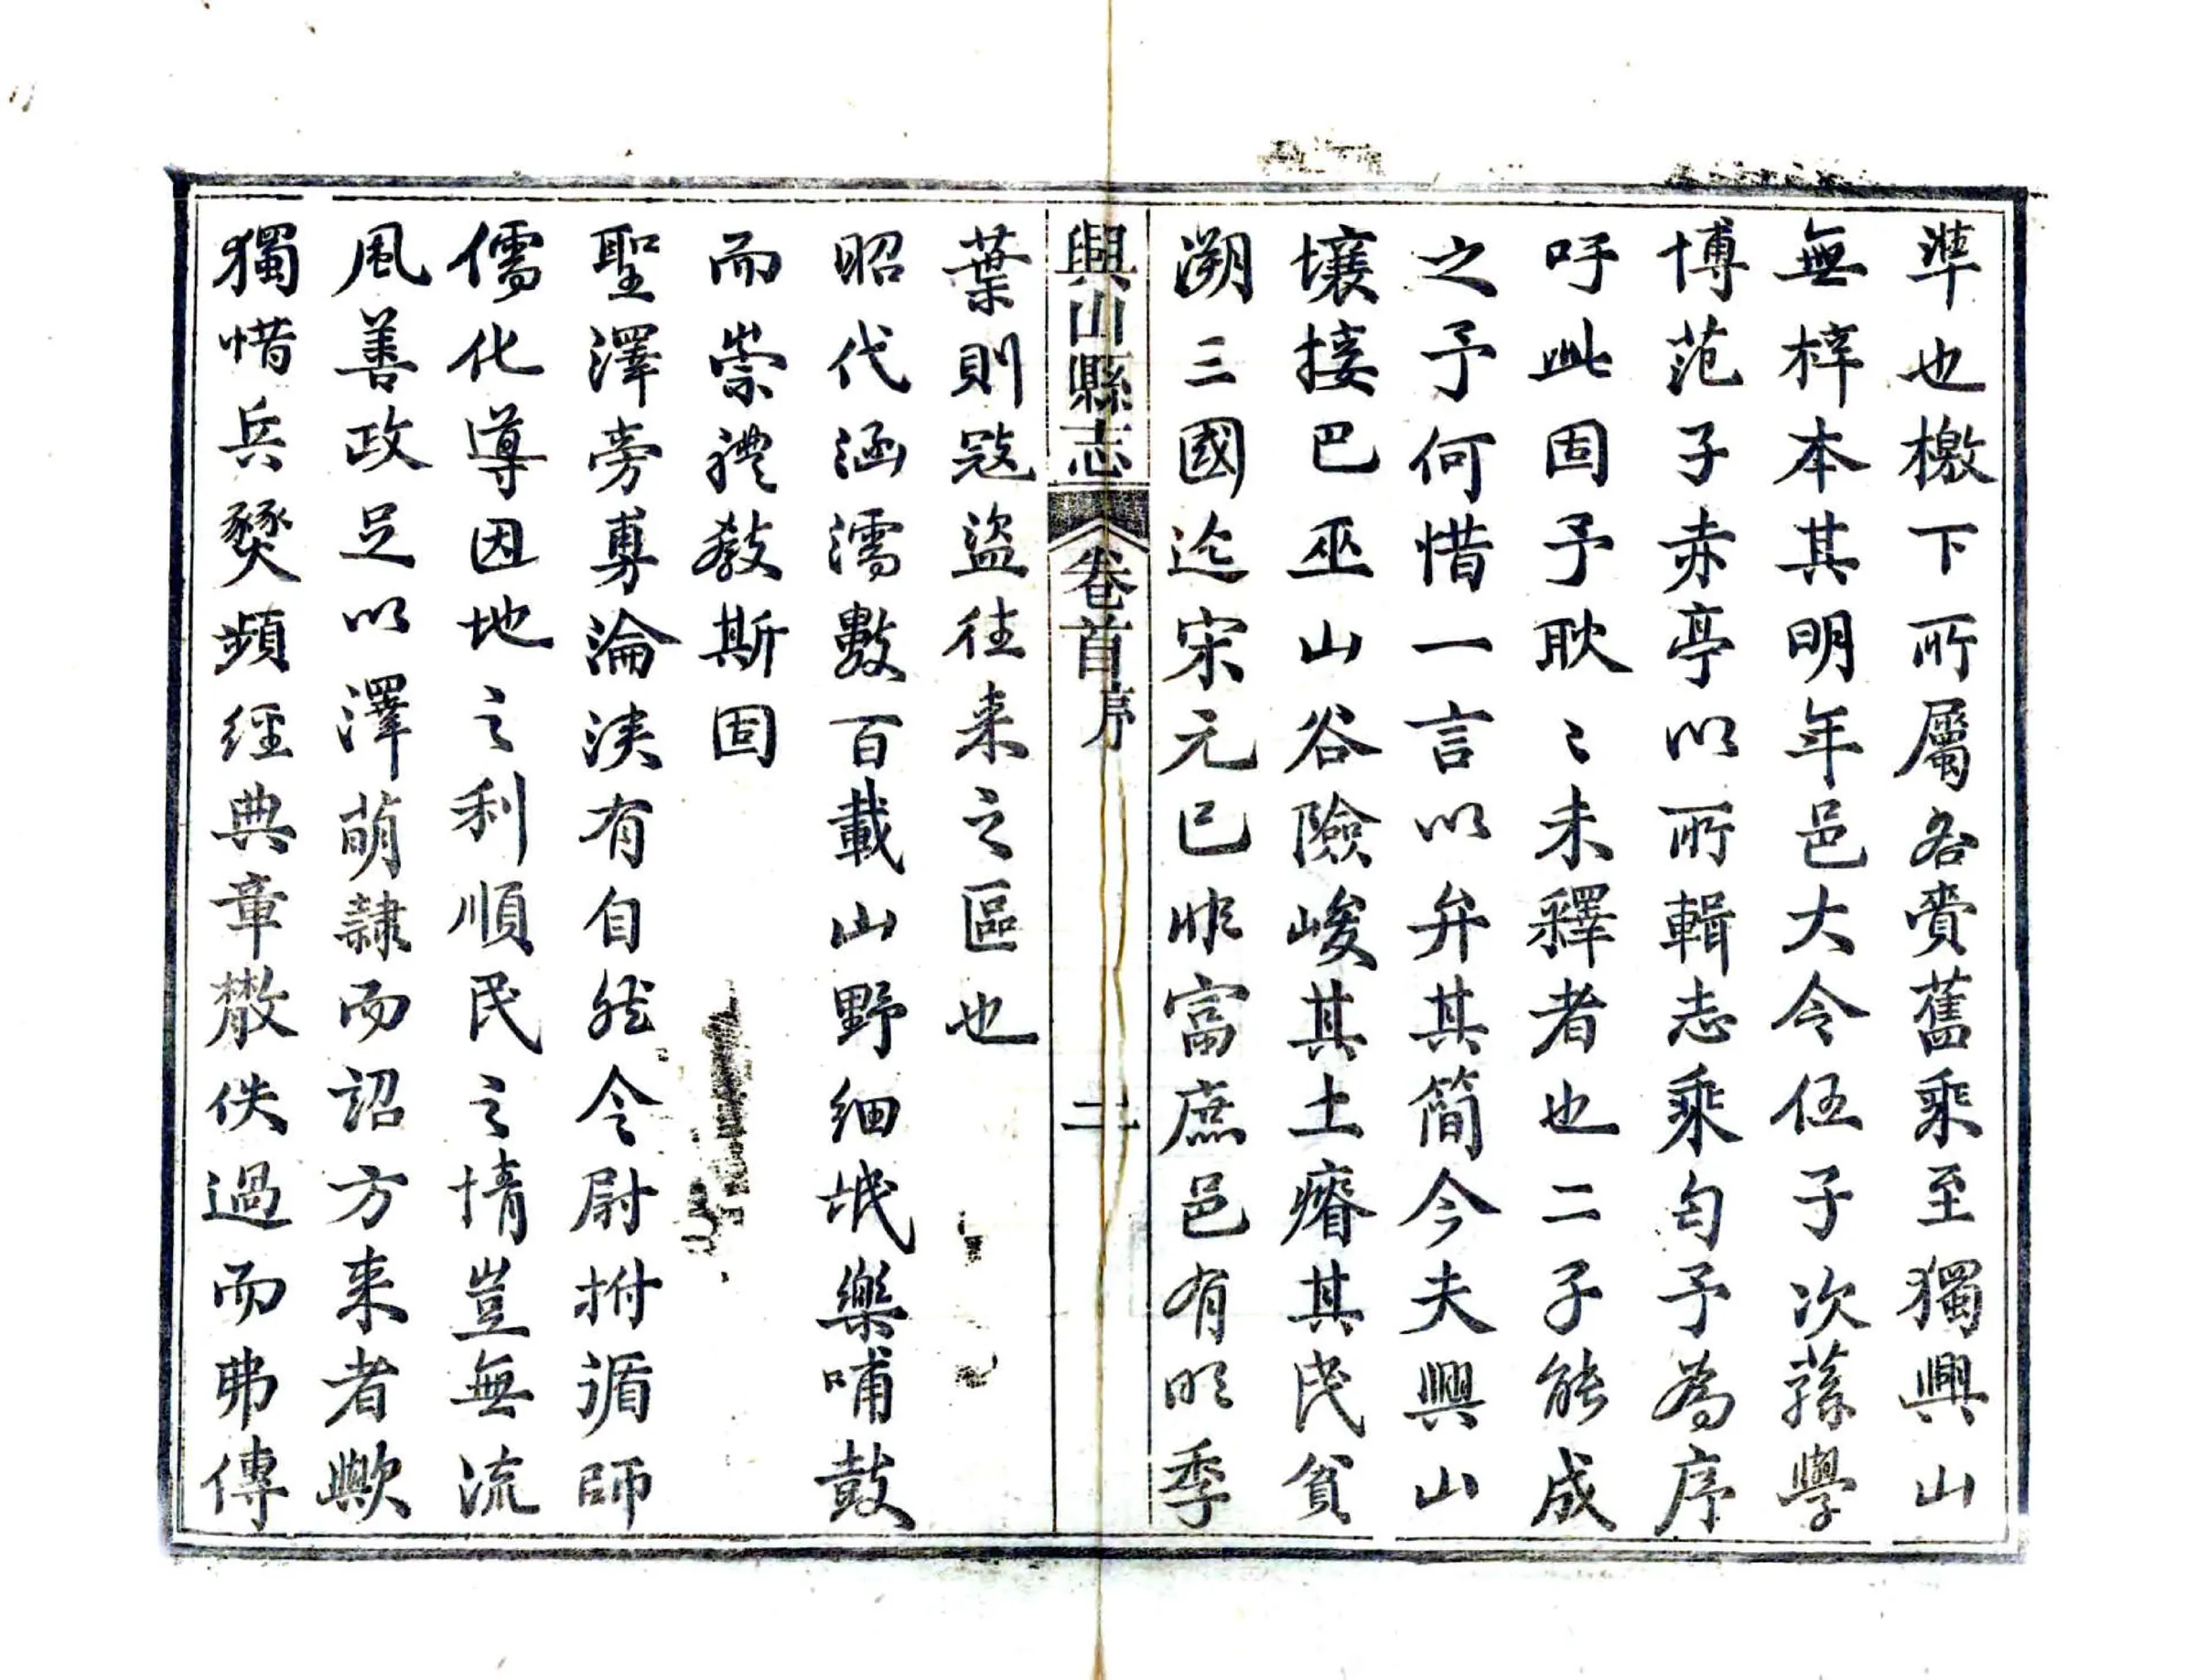 準也檄下所屬各賫舊乘至獨興山
無梓本其明年邑大令伍子次蓀學
博范子赤亭以所輯志乘匄予為序
吁此固予耿〻未釋者也二子能成
之予何惜一言以弁其簡今夫興山
壤接巴巫山谷險峻其土瘠其民貧
溯三國迄宋元已非富庶邑有明季
興山縣志 卷首 序 二
葉則寇盜往来之區也
昭代涵濡數百載山野細氓樂哺鼓
而崇禮教斯固
聖澤旁尃淪浹有自然令尉拊循師
儒化導因地之利順民之情豈無流
風善政足以澤萌隷而詔方来者歟
獨惜兵燹頻經典章散佚過而弗傳